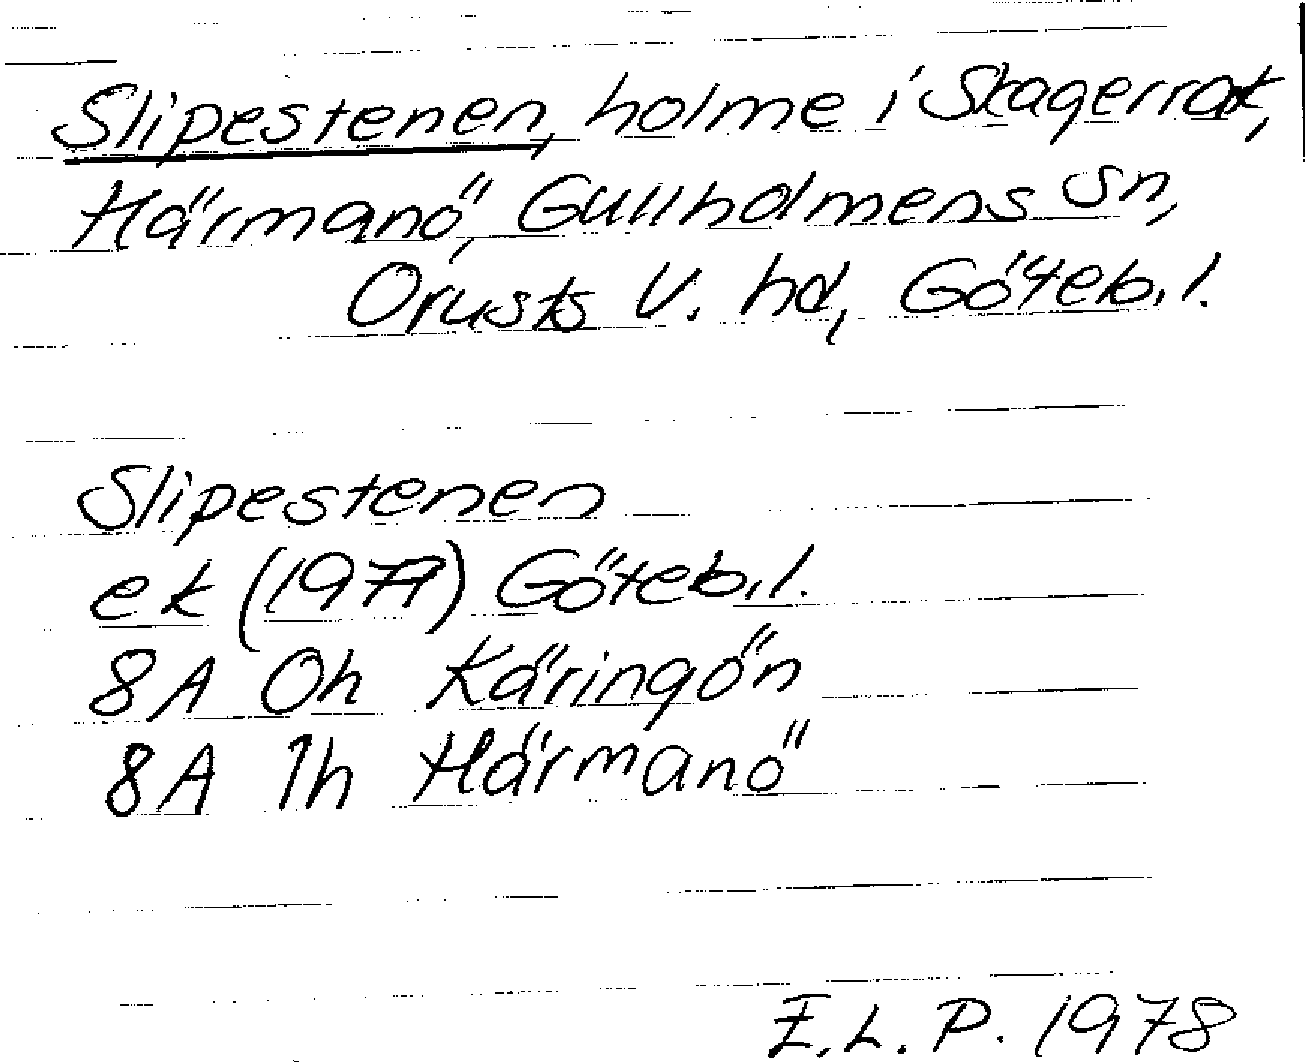 Slipestenen, holme i Skagerrak,
Härmanö, Gullholmens sn,
Orusts V. hd, Göteb.l.
Slipestenen
ek (1977) Göteb.l.
8A 0h Käringön
8A 1h Härmanö
E.L.P. 1978